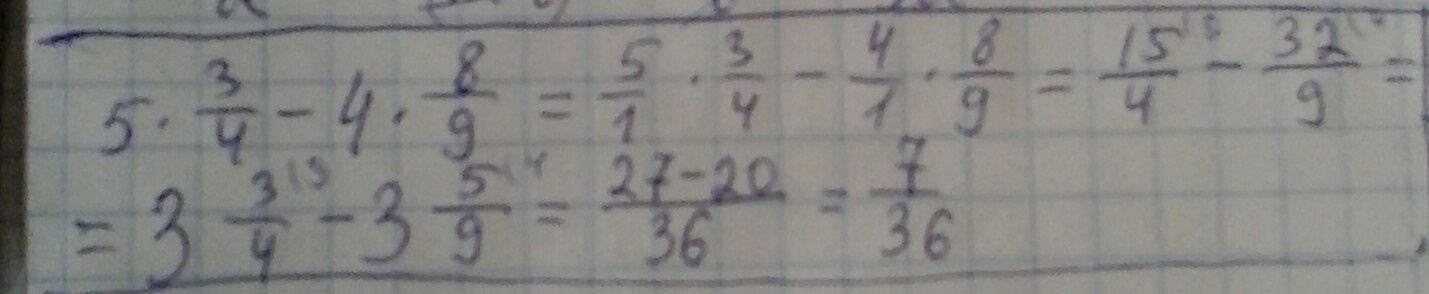 5 · 3/4 - 4 · 8/9 = 5/1 · 3/4 - 4/1 · 8/9 = 15/4 - 32/9 =
= 3 3/4 - 3 5/9 = 27-20/36 = 7/36